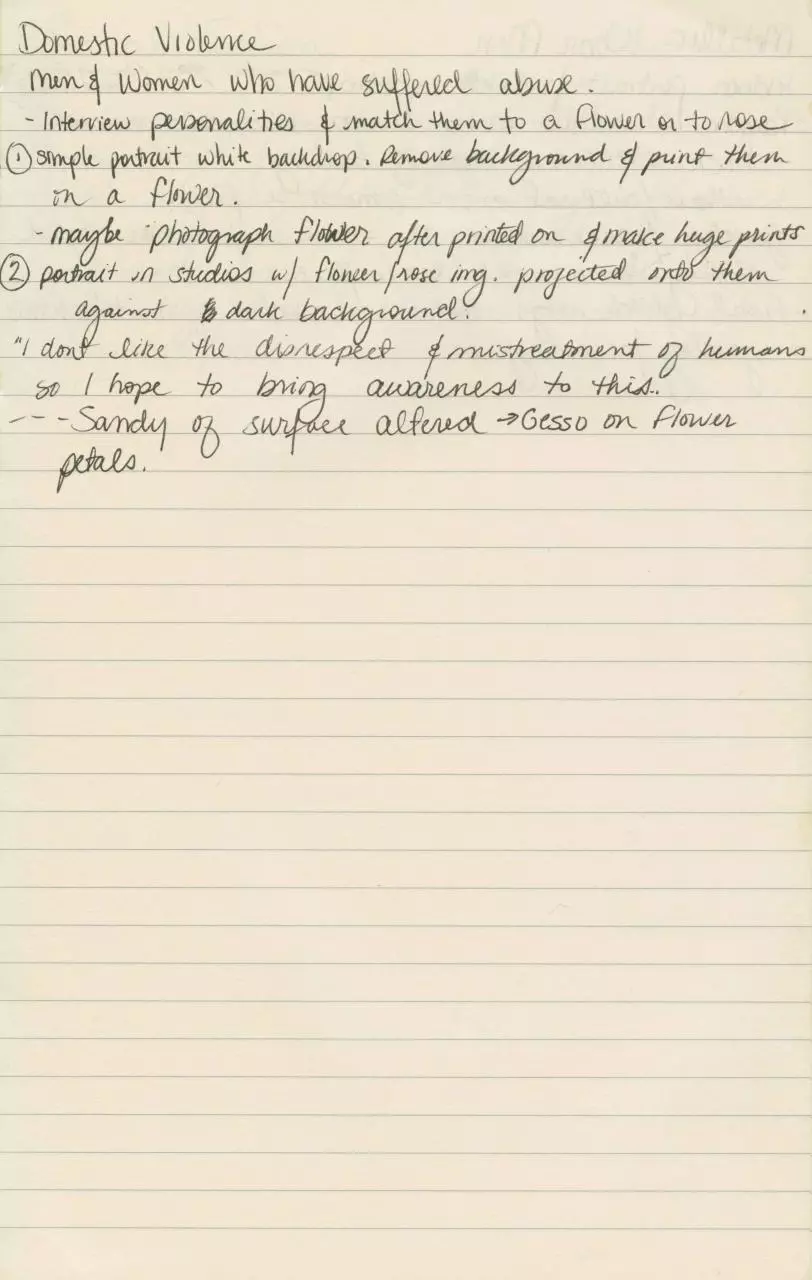 Domestic Violence
Men & Women who have suffered abuse.
- Interview personalities & match them to a flower or to rose
① simple portrait white backdrop. Remove background & print them
on a flower.
- maybe photograph flower after printed on & make huge prints
② portrait in studios w/ flower/rose img. projected onto them
against dark background.
"I dont like the disrespect & mistreatment of humans
so I hope to bring awareness to this."
- - - Sandy of surface altered → Gesso on flower
petals.